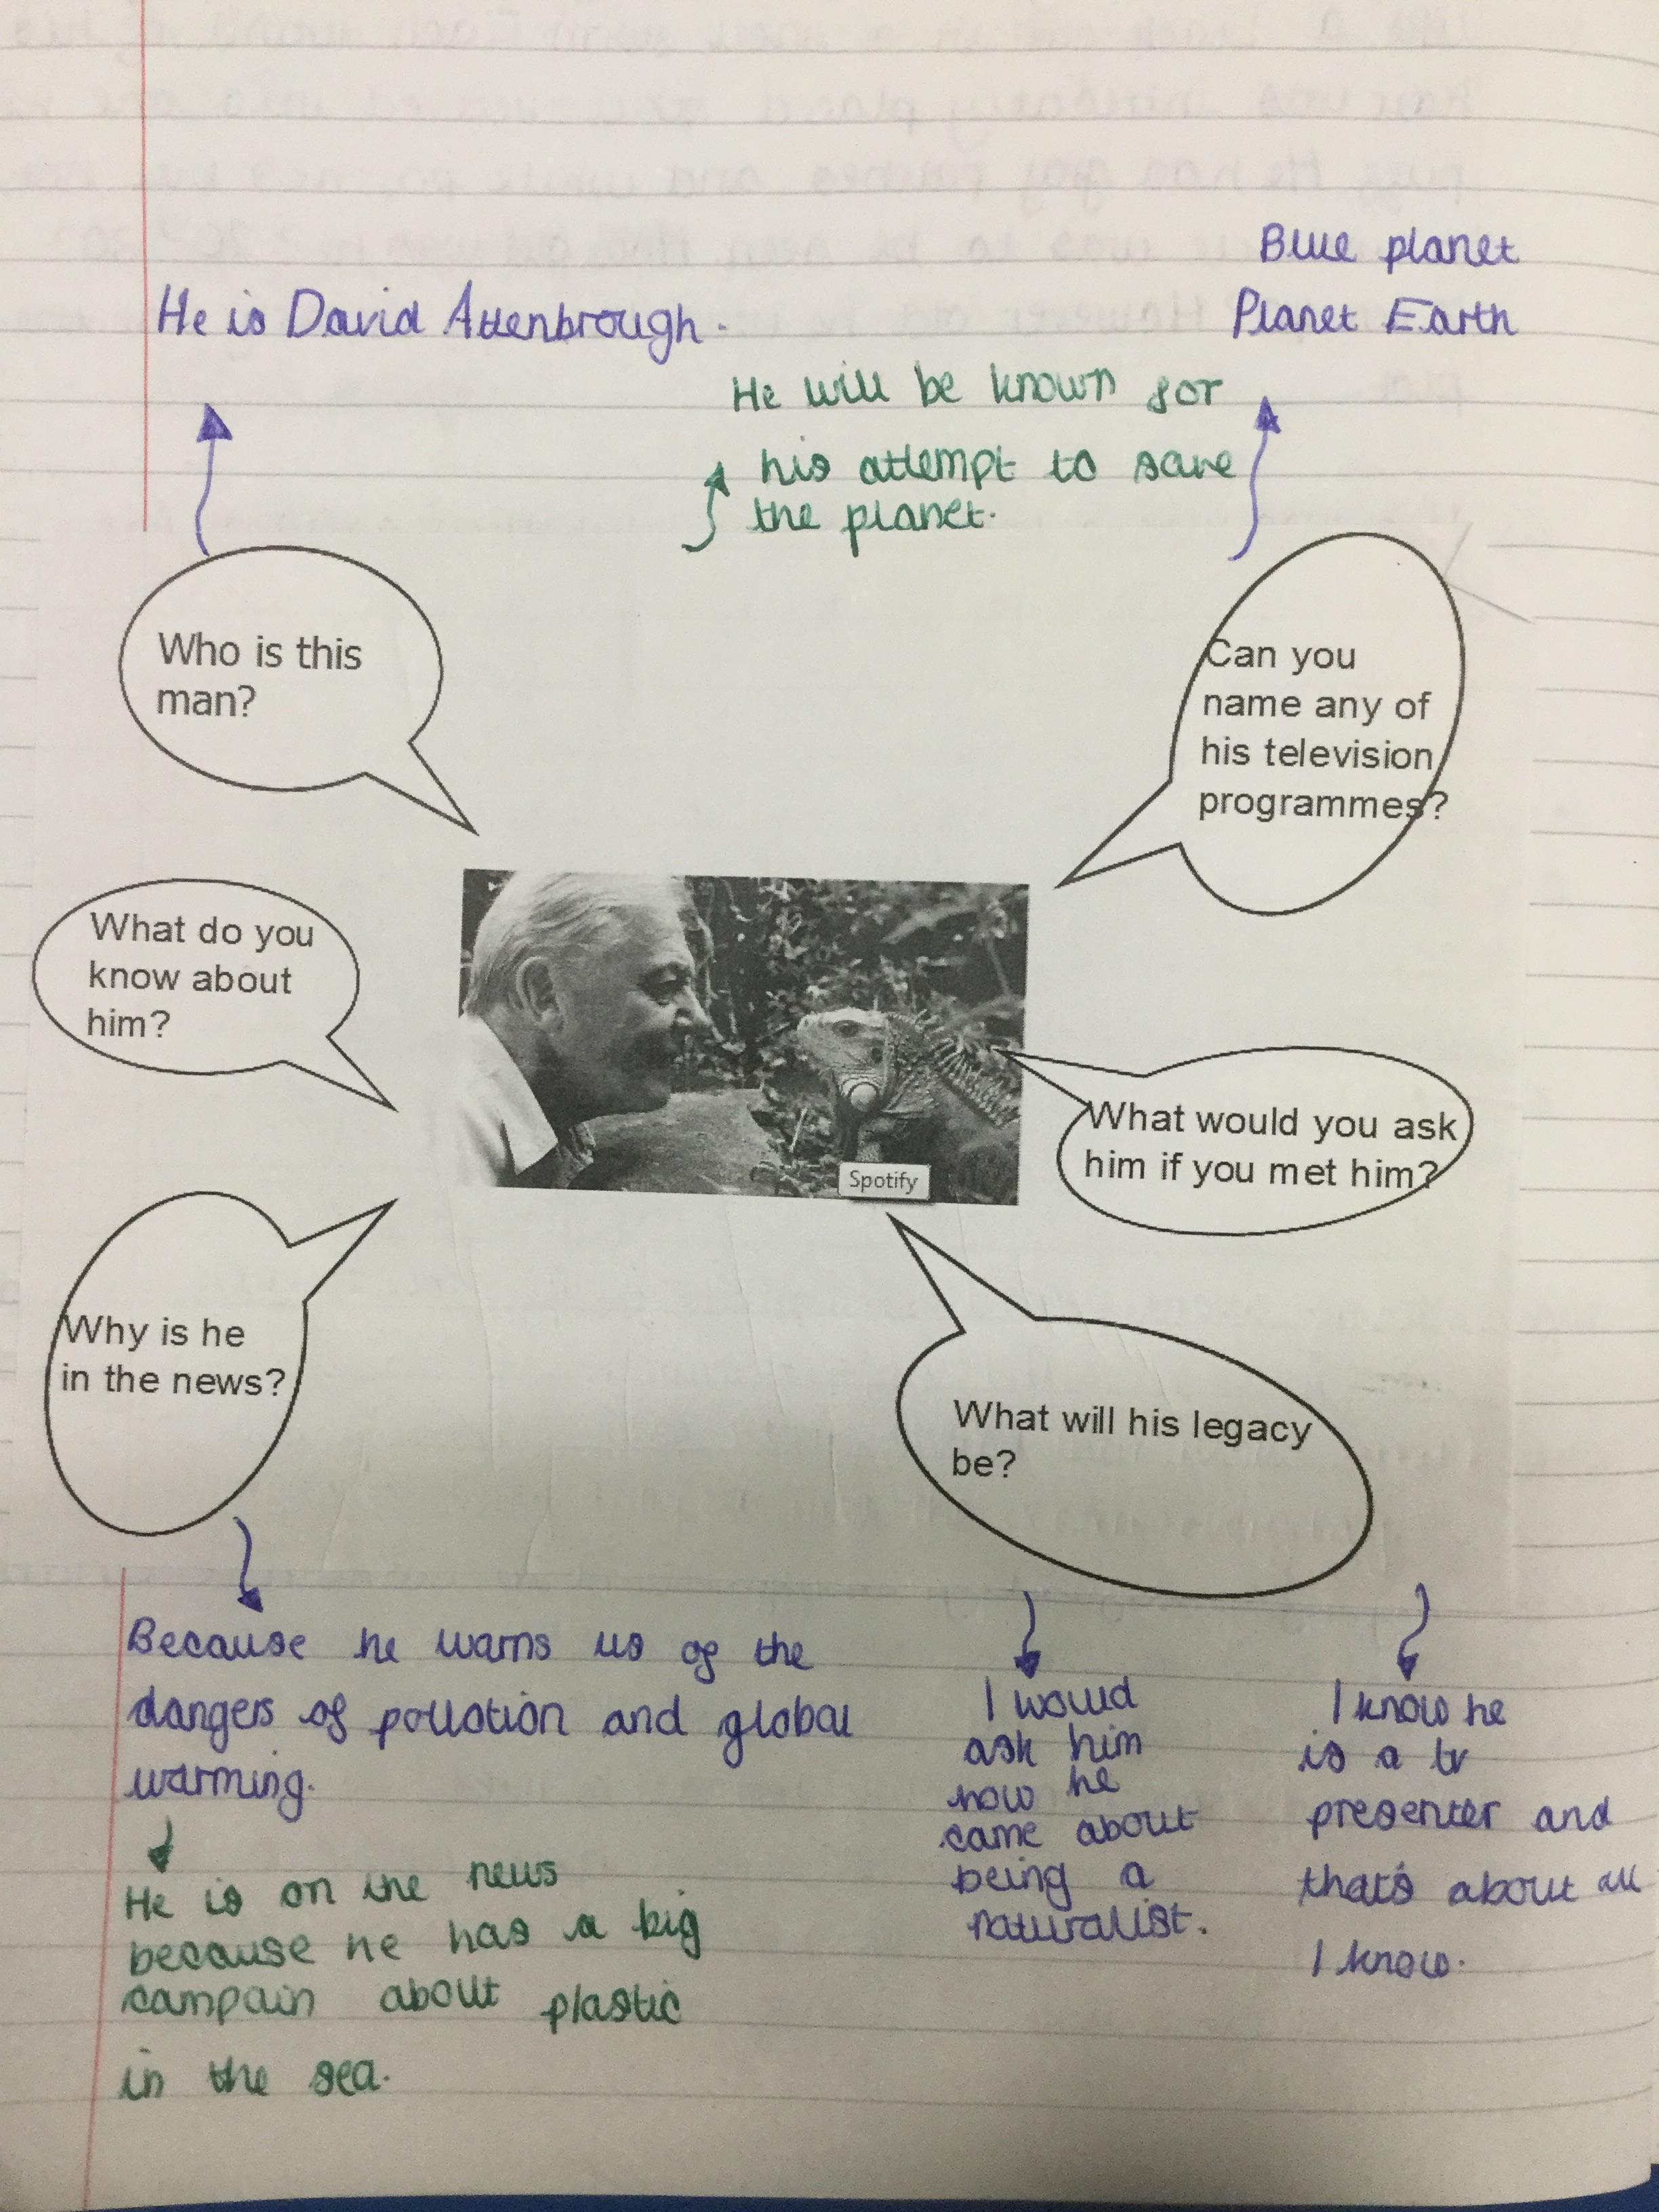 Blue planet
He is David Attenbrough.
Planet Earth
He will be known for
his attempt to save
the planet.
Who is this
man?
Can you
name any of
his television
programmes?
What do you
know about
him?
What would you ask
him if you met him?
Spotify
Why is he
in the news?
What will his legacy
be?
Because he warns us of the
dangers of pollotion and global
warming.
He is on the news
because he has a big
campain about plastic
in the sea.
I would
ask him
how he
came about
being a
naturalist.
I know he
is a tv
presenter and
that's about all
I know.